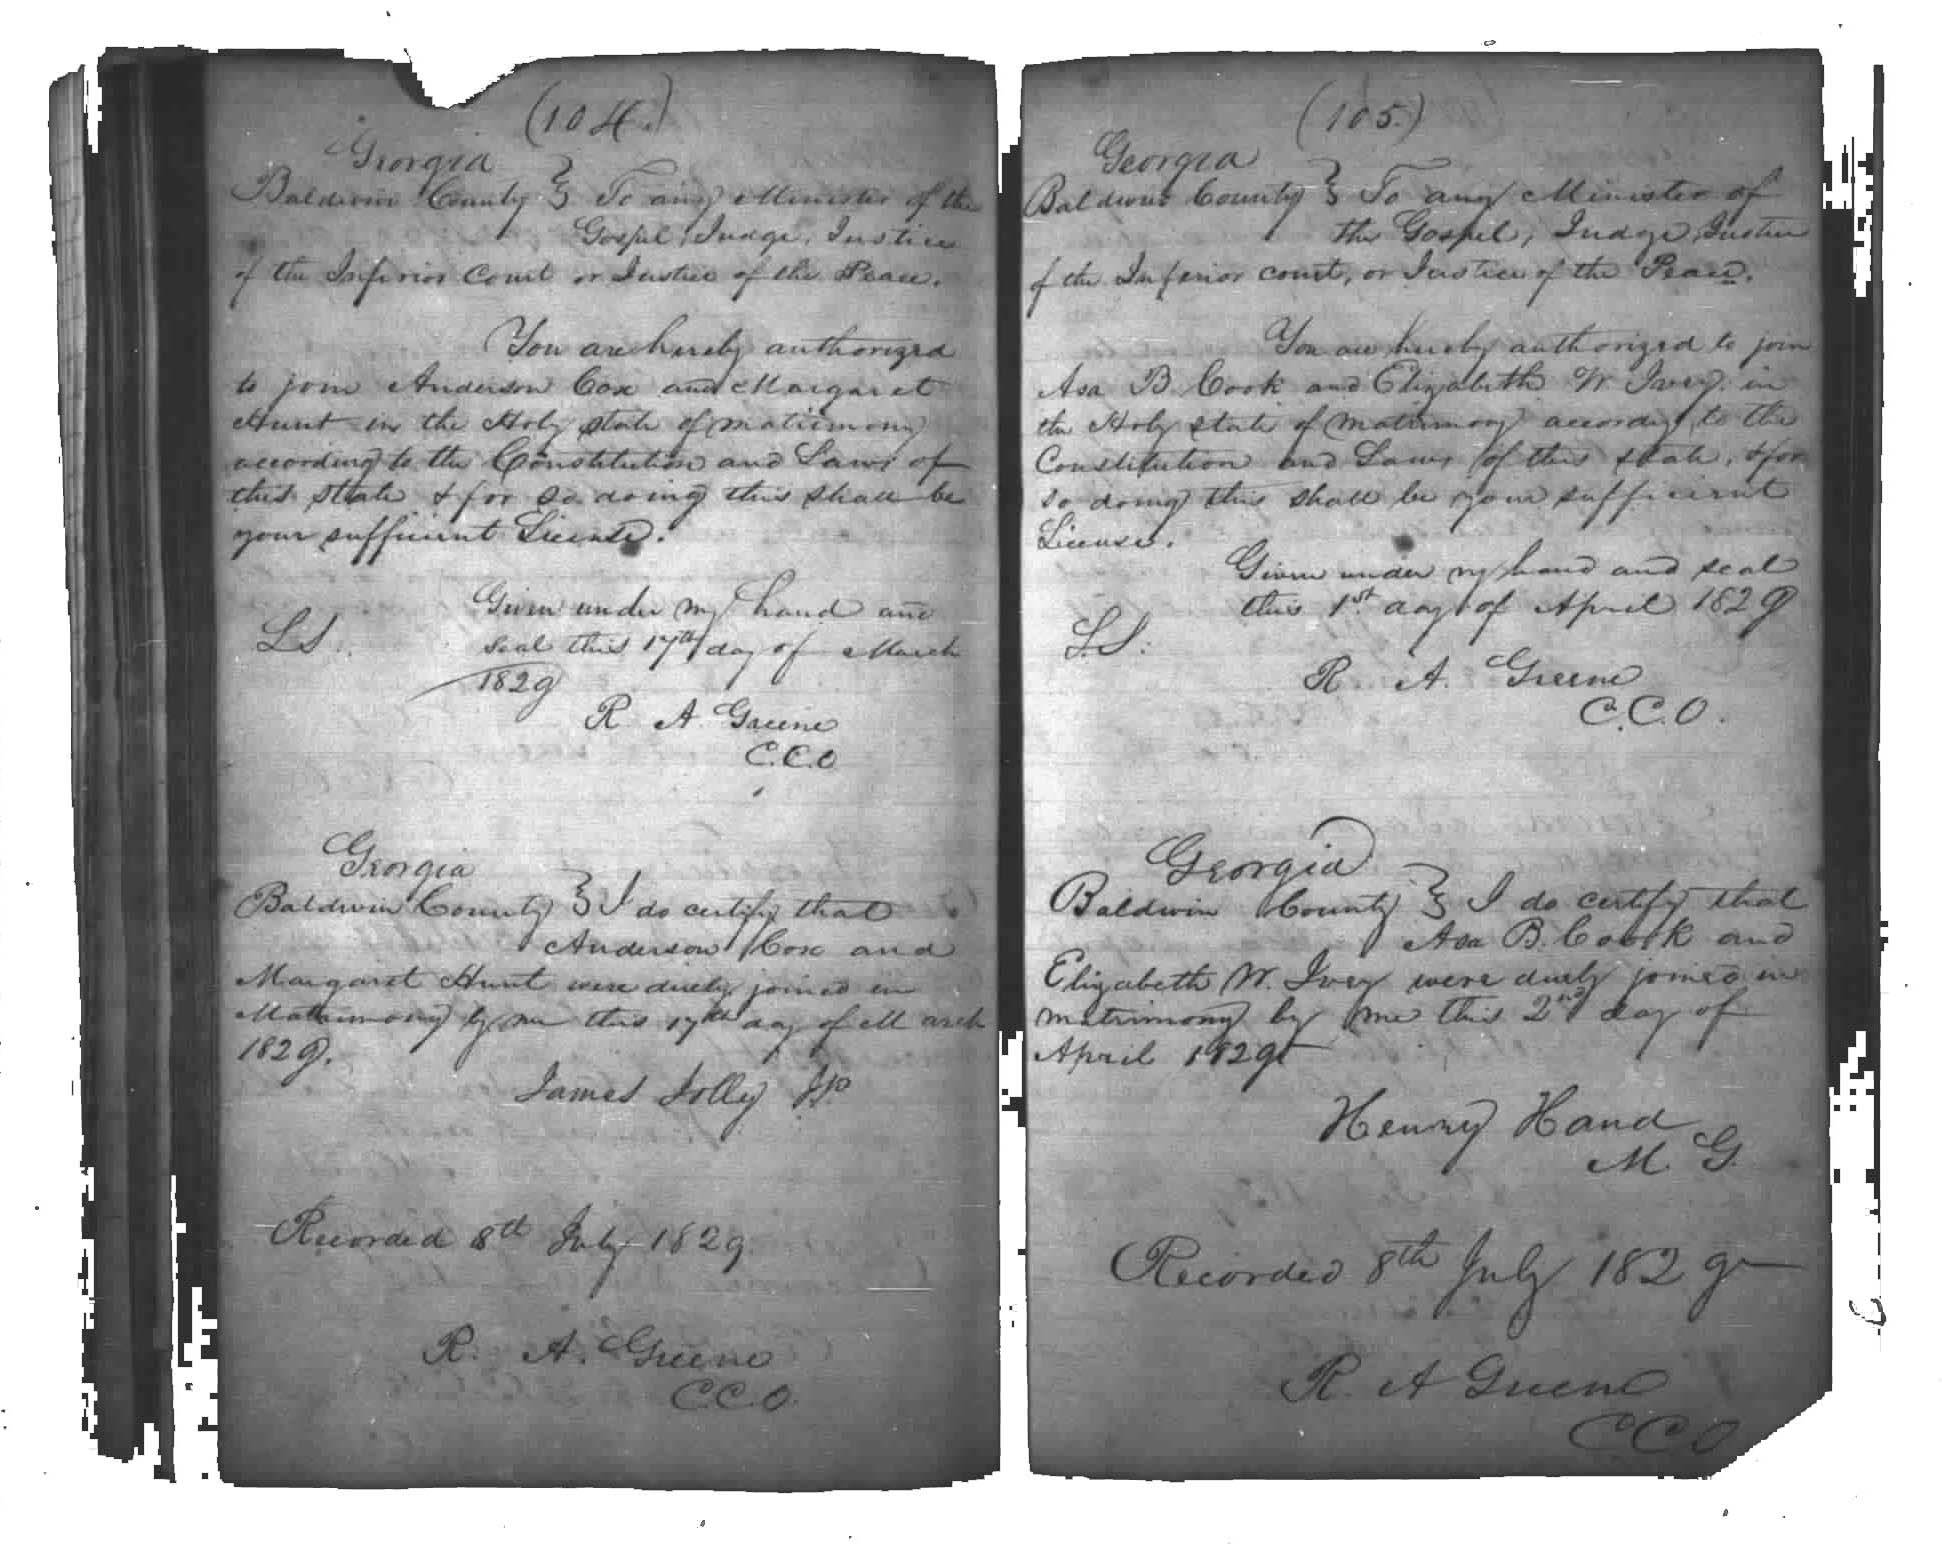 (104.)
Georgia
Baldwin County } To any Minister of the
Gospel, Judge, Justice
of the Inferior Court or Justice of the Peace.
You are hereby authorized
to join Anderson Cox and Margaret
Hunt in the Holy state of matrimony
according to the Constitution and Laws of
this state & for so doing this shall be
your sufficient License.
Given under my hand and
L.S. seal this 17th day of March
1829
R A. Greene
C.C.O
Georgia
Baldwin County } I do certify that
Anderson Cox and
Margaret Hunt were duely joined in
Matrimony by me this 17th day of March
1829.
James Jolly JP
Recorded 8th July 1829
R. A. Greene
C.C.O.
(105.)
Georgia
Baldwin County } To any Minister of
the Gospel, Judge, Justice
of the Inferior court, or Justice of the Peace.
You are hereby authorized to join
Asa B. Cook and Elizabeth W. Ivey in
the Holy state of matrimony according to the
Constitution and Laws of this state, & for
so doing this shall be your sufficient
License.
Given under my hand and seal
this 1st day of April 1829
L.S.
R. A. Greene
C.C.O.
Georgia
Baldwin County } I do certify that
Asa B. Cook and
Elizabeth W. Ivey were duely joined in
matrimony by me this 2nd day of
April 1829
Henry Hand
M. G.
Recorded 8th July 1829
R. A Greene
C C O